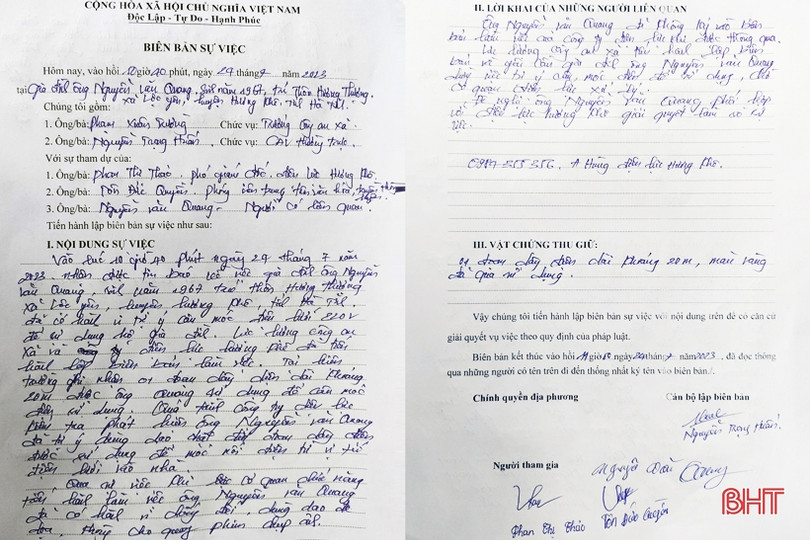 CỘNG HÒA XÃ HỘI CHỦ NGHĨA VIỆT NAM
Độc Lập - Tự Do - Hạnh Phúc
BIÊN BẢN SỰ VIỆC
Hôm nay, vào hồi 10 giờ 40 phút, ngày 29 tháng 7 năm 2023
tại Gia đình ông Nguyễn Văn Quang. Sinh năm 1967, trú Thôn Hương Thượng.
xã Lộc Yên, huyện Hương Khê. Tỉnh Hà Tĩnh.
Chúng tôi gồm:
1. Ông/bà: Phạm Xuân Trường Chức vụ: Trưởng Công an xã.
2. Ông/bà: Nguyễn Trọng Huấn. Chức vụ: CAV thường trực.
Với sự tham dự của:
1. Ông/bà: Phan Thị Thảo. phó giám đốc. điện lực Hương Khê.
2. Ông/bà: Tôn Đức Quyền. phóng viên
3. Ông/bà: Nguyễn Văn Quang - Người có liên quan.
Tiến hành lập biên bản sự việc như sau:
I. NỘI DUNG SỰ VIỆC
Vào lúc 10 giờ 40 phút ngày 29 tháng 7 năm
2023. nhận được tin báo về việc gia đình ông Nguyễn
Văn Quang, sinh năm 1967 trú thôn Hương Thượng
xã Lộc Yên, huyện Hương Khê, tỉnh Hà Tĩnh.
đã có hành vi tự ý câu móc điện lưới 220V
để sử dụng hộ gia đình. Lực lượng công an
xã và điện lực Hương Khê đã tiến
hành lập biên bản làm việc. Tại hiện
trường ghi nhận 01 đoạn dây điện dài khoảng
20m được ông Quang sử dụng để câu móc
điện sử dụng. Quá trình công ty điện lực
kiểm tra phát hiện ông Nguyễn Văn Quang
đã tự ý dùng dao chặt đứt đoạn dây điện
được sử dụng để móc nối điện từ vị trí
điện lưới vào nhà.
Qua sự việc khi được cơ quan chức năng
tiến hành làm việc ông Nguyễn Văn Quang
đã có hành vi chống đối, dùng dao đe
dọa, không cho quay phim chụp ảnh.
II. LỜI KHAI CỦA NHỮNG NGƯỜI LIÊN QUAN
Ông Nguyễn Văn Quang đã không ký vào biên
bản làm việc của công ty điện lực khi được thông qua.
Lực lượng công an xã tiến hành lập biên
bản về gia đình ông Nguyễn Văn Quang
việc tự ý câu móc điện để sử dụng,
cơ quan điện lực xử lý.
Đề nghị ông Nguyễn Văn Quang phối hợp
với điện lực Hương Khê giải quyết làm rõ sự
việc.
A Hùng điện lực Hương Khê.
III. VẬT CHỨNG THU GIỮ:
01 đoạn dây điện dài khoảng 20m, màu vàng
đã qua sử dụng.
Vậy chúng tôi tiến hành lập biên bản sự việc với nội dung trên để có căn cứ
giải quyết vụ việc theo quy định của pháp luật.
Biên bản kết thúc vào hồi ngày 29/7 năm 2023. đã đọc thông
qua những người có tên trên đi đến thống nhất ký tên vào biên bản./.
Chính quyền địa phương
Cán bộ lập biên bản
Nguyễn Trọng Huấn.
Người tham gia
Nguyễn Văn Quang
Phan Thị Thảo
Tôn Đức Quyền
BHT